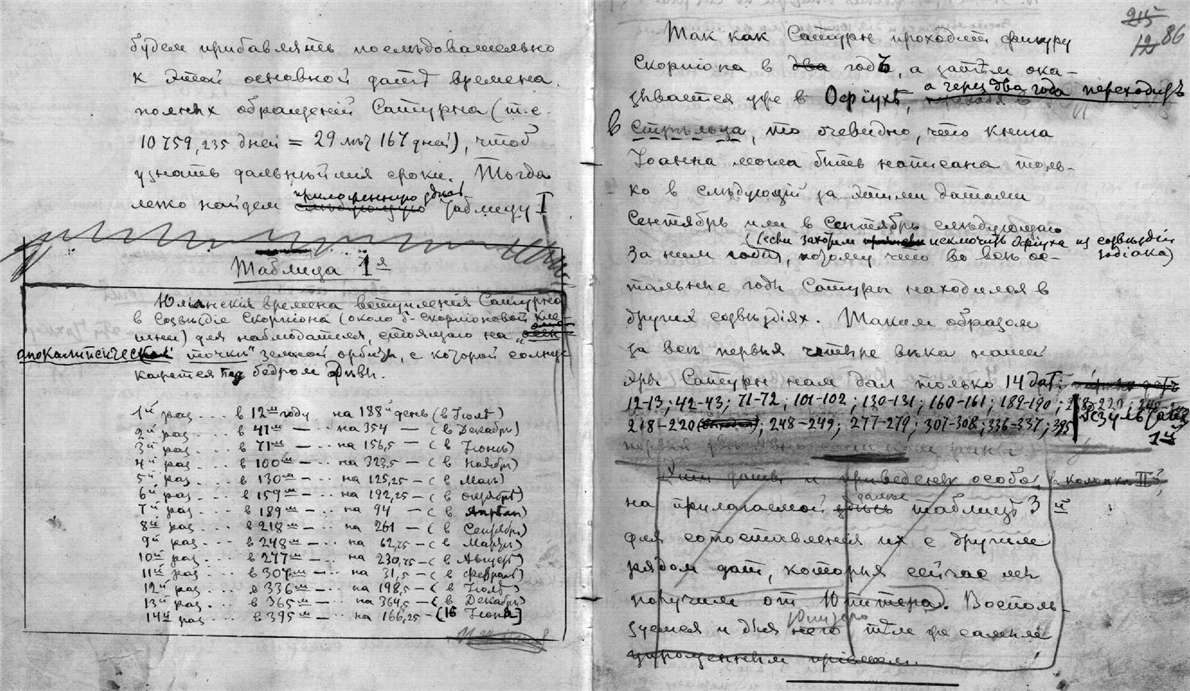 будем прибавлять последовательно
к этой основной датѣ времена
полных обращений Сатурна (т.е.
10 759,235 дней = 29 лѣт 167 дней), чтоб
узнать дальнѣйшия сроки. Тогда
легко найдем приложенную здѣсь таблицу I
Таблица 1я
Юлианския времена вступления Сатурна
в созвѣздие Скорпиона (около β-Скорпионовой кле-
шни) для наблюдателя, стоящаго на
апокалиптической точки" земной орбиты, с которой солнце
кажется под бедром Дѣвы.
1й раз ... в 12м году на 138й день (в Июлѣ)
2й раз ... в 41м — .. на 354 — (в Декабрѣ)
3й раз ... в 71м — .. на 156,5 — (в Июнѣ)
4й раз ... в 100м — .. на 323,5 — (в Ноябрѣ)
5й раз ... в 130м — .. на 125,25 — (в Маѣ)
6й раз ... в 159м — .. на 292,25 — (в Октябрѣ)
7й раз ... в 189м — .. на 94 — (в Апрѣлѣ)
8й раз ... в 218м — .. на 261 — (в Сентябрѣ)
9й раз ... в 248м — .. на 62,25 — (в Мартѣ)
10й раз ... в 277м — .. на 230,25 — (в Августѣ)
11й раз ... в 307м — .. на 31,5 — (в Февралѣ)
12й раз ... в 336м — .. на 198,5 — (в Июлѣ)
13й раз ... в 365м — .. на 364,5 — (в Декабрѣ)
14й раз ... в 395м — .. на 166,25 — (16 Июня)
215
12 86
Так как Сатурн проходит фигуру
Скорпиона в два годъ, а затѣм ока-
зывается уже в Офiухѣ, а через два года переходитъ
в Стрѣльца, то очевидно, что книга
Иоанна могла быть написана толь-
ко в слѣдующий за этими датами
Сентябрь или в Сентябрь слѣдующаго
(если захотим исключить Офiуха из созвѣздий
зодиака)
за ним года, потому что во всѣ ос-
тальные годы Сатурн находился в
других созвѣздиях. Таким образом
за всѣ первыя четыре вѣка нашей
эры Сатурн нам дал только 14 дат:
12-13; 42-43; 71-72; 101-102; 130-131; 160-161; 189-190;
218-220; 248-249; 277-279; 307-308; 336-337; 395
Результат
1й
Эти даты и приведены особо, в колонкѣ IIй,
на прилагаемой далѣе таблицѣ 3й
для сопоставления их с другим
рядом дат, которыя сейчас мы
получим от Юпитера. Восполь-
зуемся и для него тѣм же самым
Юпитера
упрощенным приемом.